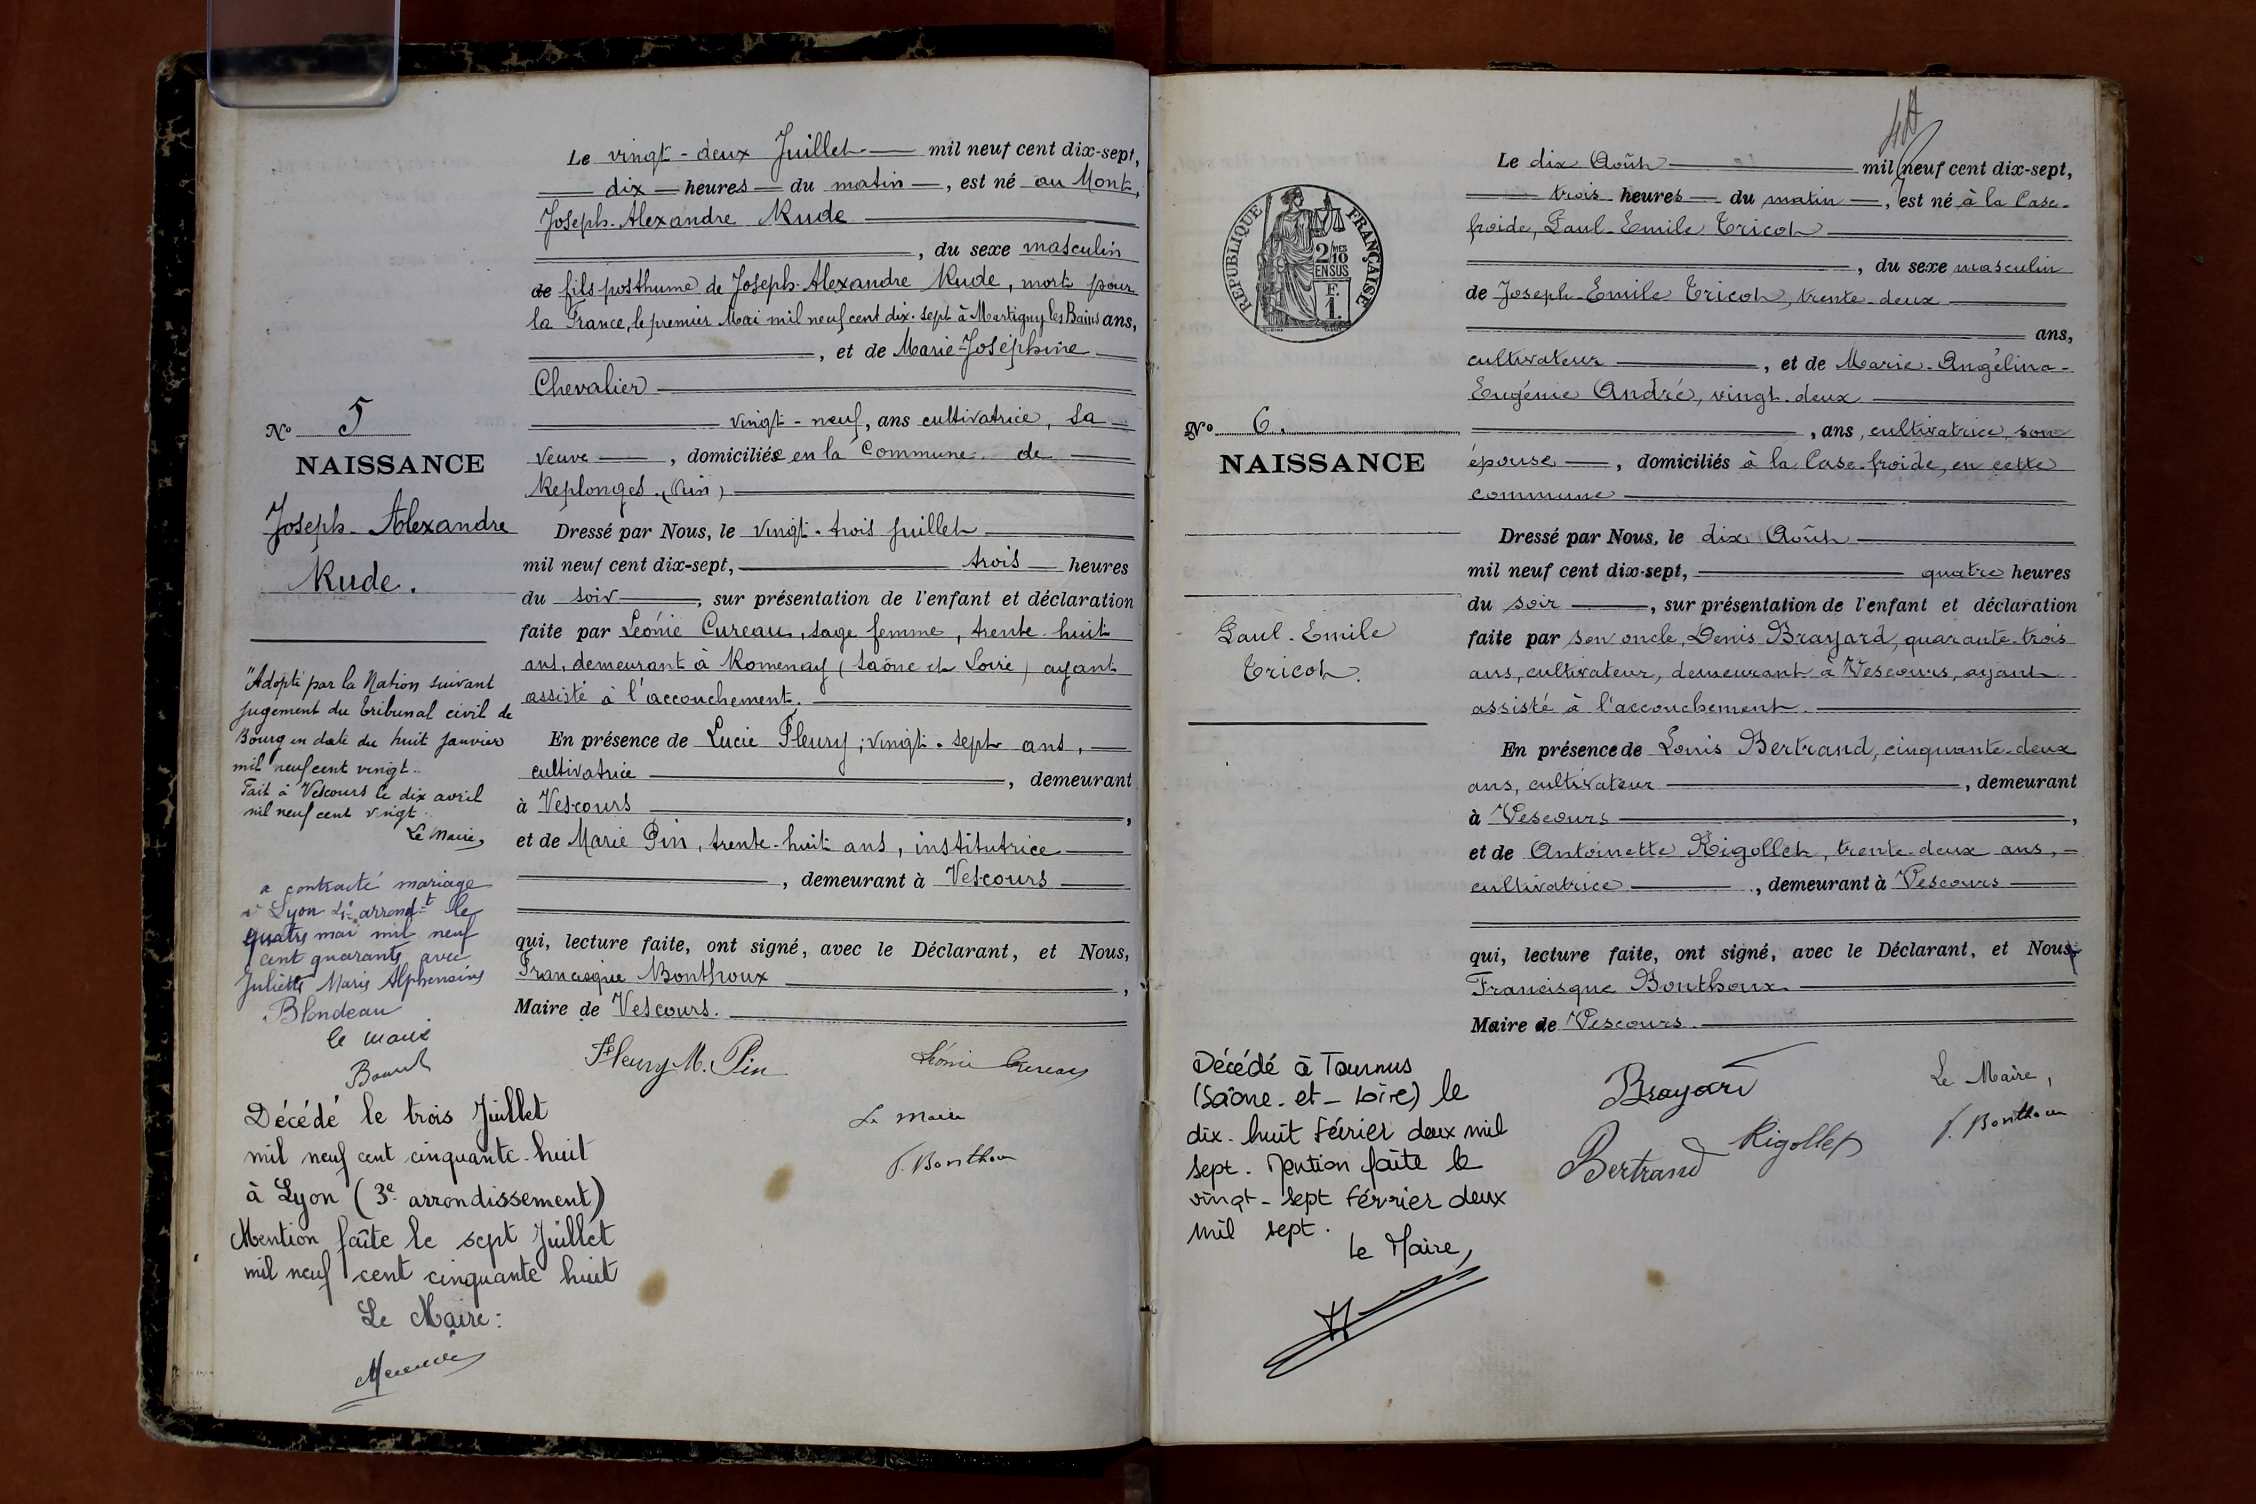 Le vingt-deux Juillet mil neuf cent dix-sept,
dix heures du matin, est né au Mont,
Joseph-Alexandre Rude
, du sexe masculin
de fils posthume de Joseph-Alexandre Rude, mort pour
la France, le premier Mai mil neuf cent dix-sept à Martigny les Bains ans,
, et de Marie-Joséphine
Chevalier
vingt-neuf, ans cultivatrice, sa
veuve, domiciliée en la Commune de
Replonges. (Ain)
Dressé par Nous, le vingt-trois juillet
mil neuf cent dix-sept, trois heures
du soir, sur présentation de l'enfant et déclaration
faite par Léonie Cureau, sage femme, trente-huit
ans, demeurant à Romenay (Saône et Loire) ayant
assisté à l'accouchement.
En présence de Lucie Fleury, vingt-sept ans,
cultivatrice, demeurant
à Vescours,
et de Marie Pin, trente-huit ans, institutrice
, demeurant à Vescours
qui, lecture faite, ont signé, avec le Déclarant, et Nous,
Francisque Bonthoux,
Maire de Vescours.
Fleury M. Pin Léonie Cureau
Le Maire
F. Bonthoux
No 5
NAISSANCE
Joseph-Alexandre
Rude.
"Adopté par la Nation suivant
jugement du tribunal civil de
Bourg en date du huit janvier
mil neuf cent vingt..
Fait à Vescours le dix avril
mil neuf cent vingt..
Le Maire,
a contracté mariage
à Lyon 4e arrondt le
quatre mai mil neuf
cent quarante avec
Juliette Marie Alphonsine
Blondeau
le maire
Décédé le trois Juillet
mil neuf cent cinquante-huit
à Lyon (3e arrondissement)
Mention faîte le sept Juillet
mil neuf cent cinquante huit
Le Maire:
Le dix Août mil neuf cent dix-sept,
trois heures du matin, est né à la Case-
froide, Paul-Emile Tricot
, du sexe masculin
de Joseph-Emile Tricot, trente-deux
ans,
cultivateur, et de Marie-Angélina-
Eugénie André, vingt-deux
, ans, cultivatrice, son
épouse, domiciliés à la Case-froide, en cette
commune
Dressé par Nous, le dix Août
mil neuf cent dix-sept, quatre heures
du soir, sur présentation de l'enfant et déclaration
faite par son oncle, Denis Brayard, quarante-trois
ans, cultivateur, demeurant à Vescours, ayant
assisté à l'accouchement.
En présence de Louis Bertrand, cinquante-deux
ans, cultivateur, demeurant
à Vescours,
et de Antoinette Rigollet, trente-deux ans,
cultivatrice, demeurant à Vescours
qui, lecture faite, ont signé, avec le Déclarant, et Nous,
Francisque Bonthoux
Maire de Vescours.
Brayard
Le Maire,
F. Bonthoux
Bertrand Rigollet
RÉPUBLIQUE FRANÇAISE
2/10MES
EN SUS
F.
1.
No 6.
NAISSANCE
Paul-Emile
Tricot.
Décédé à Tournus
(Saône-et-Loire) le
dix-huit février deux mil
sept. Mention faite le
vingt-sept février deux
mil sept.
Le Maire,